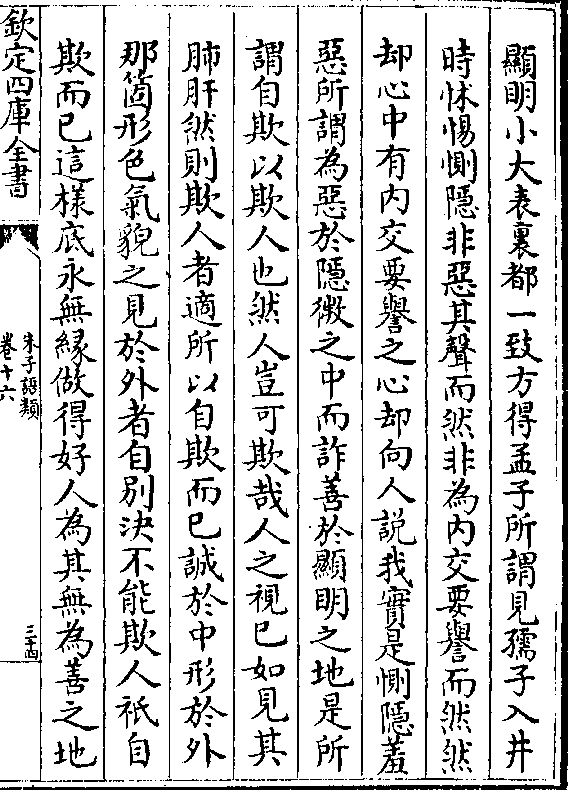 顯明小大表裏都一致方得孟子所謂見孺子入井
時怵惕惻隱非惡其聲而然非為内交要譽而然然
却心中有内交要譽之心却向人説我實是惻隱羞
惡所謂為惡於隱微之中而詐善於顯明之地是所
謂自欺以欺人也然人豈可欺哉人之視已如見其
肺肝然則欺人者適所以自欺而已誠於中形於外
那箇形色氣貌之見於外者自别決不能欺人祇自
欺而已這樣底永無緣做得好人為其無為善之地
欽定四庫全書
朱子語類
卷十六
三十四